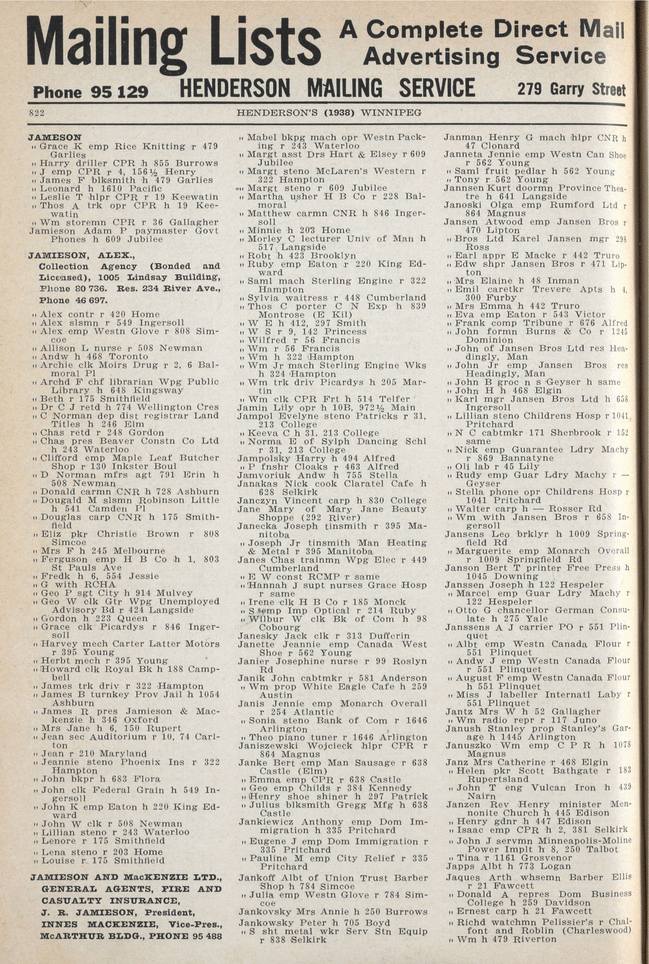 Mailing Lists A Complete Direct Mail
Advertising Service
Phone 95 129 HENDERSON MAILING SERVICE 279 Garry Street
822 HENDERSON'S (1938) WINNIPEG
JAMESON
" Grace K emp Rice Knitting r 479
Garlies
" Harry driller CPR h 855 Burrows
" J emp CPR r 4, 156½ Henry
" James F blksmith h 479 Garlies
" Leonard h 1610 Pacific
" Leslie T hlpr CPR r 19 Keewatin
" Thos A trk opr CPR h 19 Kee-
watin
" Wm storemn CPR r 36 Gallagher
Jamieson Adam P paymaster Govt
Phones h 609 Jubilee
JAMIESON, ALEX.,
Collection Agency (Bonded and
Licensed), 1005 Lindsay Building,
Phone 80 736. Res. 234 River Ave.,
Phone 46 697.
" Alex contr r 420 Home
" Alex slsmn r 549 Ingersoll
" Alex emp Westn Glove r 808 Sim-
coe
" Allison L nurse r 508 Newman
" Andw h 468 Toronto
" Archie clk Moirs Drug r 2, 6 Bal-
moral Pl
" Archd F chf librarian Wpg Public
Library h 648 Kingsway
" Beth r 175 Smithfield
" Dr C J red h 774 Wellington Cres
" C Norman dep dist registrar Land
Titles h 246 Elm
" Chas retd r 248 Gordon
" Chas pres Beaver Constn Co Ltd
h 243 Waterloo
" Clifford emp Maple Leaf Butcher
Shop r 130 Inkster Boul
" D Norman mfrs agt 791 Erin h
508 Newman
" Donald carmn CNR h 728 Ashburn
" Dougald M slsmn Robinson Little
h 541 Camden Pl
" Douglas carp CNR h 175 Smith-
field
" Eliz pkr Christie Brown r 808
Simcoe
" Mrs F h 245 Melbourne
" Ferguson emp H B Co h 1, 803
St Pauls Ave
" Fredk h 6, 554 Jessie
" G with RCHA
" Geo P sgt City h 914 Mulvey
" Geo W clk Gtr Wpg Unemployed
Advisory Bd r 424 Langside
" Gordon h 223 Queen
" Grace clk Picardys r 846 Inger-
soll
" Harvey mech Carter Latter Motors
r 395 Young
" Herbt mech r 395 Young
" Howard clk Royal Bk h 188 Camp-
bell
" James trk driv r 322 Hampton
" James B turnkey Prov Jail h 1054
Ashburn
" James R pres Jamieson & Mac-
kenzie h 346 Oxford
" Mrs Jane h 6, 150 Rupert
" Jean sec Auditorium r 10, 74 Carl-
ton
" Jean r 210 Maryland
" Jeannie steno Phoenix Ins r 322
Hampton
" John bkpr h 683 Flora
" John clk Federal Grain h 549 In-
gersoll
" John K emp Eaton h 220 King Ed-
ward
" John W clk r 508 Newman
" Lillian steno r 243 Waterloo
" Lenore r 175 Smithfield
" Lena steno r 203 Home
" Louise r 175 Smithfield
JAMIESON AND MacKENZIE LTD.,
GENERAL AGENTS, FIRE AND
CASUALTY INSURANCE,
J. R. JAMIESON, President,
INNES MACKENZIE, Vice-Pres.,
McARTHUR BLDG., PHONE 95 488
" Mabel bkpg mach opr Westn Pack-
ing r 243 Waterloo
" Margt asst Drs Hart & Elsey r 609
Jubilee
" Margt steno McLaren's Western r
322 Hampton
" Margt steno r 609 Jubilee
" Martha usher H B Co r 228 Bal-
moral
" Matthew carmn CNR h 846 Inger-
soll
" Minnie h 203 Home
" Morley C lecturer Univ of Man h
517 Langside
" Robt h 423 Brooklyn
" Ruby emp Eaton r 220 King Ed-
ward
" Saml mach Sterling Engine r 322
Hampton
" Sylvia waitress r 448 Cumberland
" Thos C porter C N Exp h 839
Montrose (E Kil)
" W E h 412, 297 Smith
" W S r 9, 142 Princess
" Wilfred r 56 Francis
" Wm r 56 Francis
" Wm h 322 Hampton
" Wm Jr mach Sterling Engine Wks
h 324 Hampton
" Wm trk driv Picardys h 205 Mar-
tin
" Wm clk CPR Frt h 514 Telfer
Jamin Lily opr h 10B, 972½ Main
Jampol Evelyne steno Patricks r 31,
213 College
" Keeva C h 31, 213 College
" Norma E of Sylph Dancing Schl
r 31, 213 College
Jampolsky Harry h 494 Alfred
" P fnshr Cloaks r 463 Alfred
Jamvoriuk Andw h 755 Stella
Janakas Nick cook Claratel Cafe h
628 Selkirk
Janczyn Vincent carp h 830 College
Jane Mary of Mary Jane Beauty
Shoppe (292 River)
Janecka Joseph tinsmith r 395 Ma-
nitoba
" Joseph Jr tinsmith Man Heating
& Metal r 395 Manitoba
Janes Chas trainmn Wpg Elec r 449
Cumberland
" E W const RCMP r same
" Hannah J supt nurses Grace Hosp
r same
" Irene clk H B Co r 185 Monck
" S emp Imp Optical r 214 Ruby
" Wilbur W clk Bk of Com h 98
Cobourg
Janesky Jack clk r 313 Dufferin
Janette Jeannie emp Canada West
Shoe r 562 Young
Janier Josephine nurse r 99 Roslyn
Rd
Janik John cabtmkr r 581 Anderson
" Wm prop White Eagle Cafe h 259
Austin
Janis Jennie emp Monarch Overall
r 254 Atlantic
" Sonia steno Bank of Com r 1646
Arlington
" Theo piano tuner r 1646 Arlington
Janiszewski Wojcieck hlpr CPR r
864 Magnus
Janke Bert emp Man Sausage r 638
Castle (Elm)
" Emma emp CPR r 638 Castle
" Geo emp Childs r 384 Kennedy
" Henry shoe shiner h 297 Patrick
" Julius blksmith Gregg Mfg h 638
Castle
Jankiewicz Anthony emp Dom Im-
migration h 335 Pritchard
" Eugene J emp Dom Immigration r
335 Pritchard
" Pauline M emp City Relief r 335
Pritchard
Jankoff Albt of Union Trust Barber
Shop h 784 Simcoe
" Julia emp Westn Glove r 784 Sim-
coe
Jankovsky Mrs Annie h 250 Burrows
Jankowsky Peter h 705 Boyd
" S sht metal wkr Serv Stn Equip
r 838 Selkirk
Janman Henry G mach hlpr CNR h
47 Clonard
Janneta Jennie emp Westn Can Shoe
r 562 Young
" Saml fruit pedlar h 562 Young
" Tony r 562 Young
Jannsen Kurt doormn Province Thea-
tre h 641 Langside
Janoski Olga emp Rumford Ltd r
864 Magnus
Jansen Atwood emp Jansen Bros r
470 Lipton
" Bros Ltd Karel Jansen mgr 298
Ross
" Earl appr E Macke r 442 Truro
" Edw shpr Jansen Bros r 471 Lip-
ton
" Mrs Elaine h 48 Inman
" Emil caretkr Trevere Apts h 4,
300 Furby
" Mrs Emma h 442 Truro
" Eva emp Eaton r 543 Victor
" Frank comp Tribune r 676 Alfred
" John formn Burns & Co r 1245
Dominion
" John of Jansen Bros Ltd res Hea-
dingly, Man
" John Jr emp Jansen Bros res
Headingly, Man
" John B groc n s Geyser h same
" John H h 468 Elgin
" Karl mgr Jansen Bros Ltd h 658
Ingersoll
" Lillian steno Childrens Hosp r 1041,
Pritchard
" N C cabtmkr 171 Sherbrook r 152
same
" Nick emp Guarantee Ldry Machy
r 869 Bannatyne
" Oli lab r 45 Lily
" Rudy emp Guar Ldry Machy r —
Geyser
" Stella phone opr Childrens Hosp r
1041 Pritchard
" Walter carp h — Rosser Rd
" Wm with Jansen Bros r 658 In-
gersoll
Jansens Leo brklyr h 1009 Spring-
field Rd
" Marguerite emp Monarch Overall
r 1009 Springfield Rd
Janson Bert T printer Free Press h
1045 Downing
Janssen Joseph h 122 Hespeler
" Marcel emp Guar Ldry Machy r
122 Hespeler
" Otto G chancellor German Consu-
late h 275 Yale
Janssens A J carrier PO r 551 Plin-
quet
" Albt emp Westn Canada Flour r
551 Plinquet
" Andw J emp Westn Canada Flour
r 551 Plinquet
" August F emp Westn Canada Flour
h 551 Plinquet
" Miss J labeller Internatl Laby r
551 Plinquet
Jantz Mrs W h 52 Gallagher
" Wm radio repr r 117 Juno
Janush Stanley prop Stanley's Gar-
age h 1445 Arlington
Januszko Wm emp C P R h 1078
Magnus
Janz Mrs Catherine r 468 Elgin
" Helen pkr Scott Bathgate r 183
Rupertsland
" John T eng Vulcan Iron h 439
Nairn
Janzen Rev Henry minister Men-
nonite Church h 445 Edison
" Henry gdnr h 447 Edison
" Isaac emp CPR h 2, 381 Selkirk
" John J servmn Minneapolis-Moline
Power Implt h 8, 250 Talbot
" Tina r 1161 Grosvenor
Japps Albt h 773 Logan
Jaques Arth whsemn Barber Ellis
r 21 Fawcett
" Donald A repres Dom Business
College h 259 Davidson
" Ernest carp h 21 Fawcett
" Richd watchmn Pelissier's r Chal-
font and Roblin (Charleswood)
" Wm h 479 Riverton